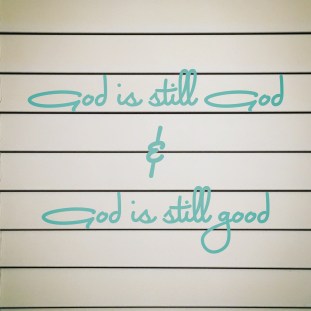 God is still God
&
God is still good